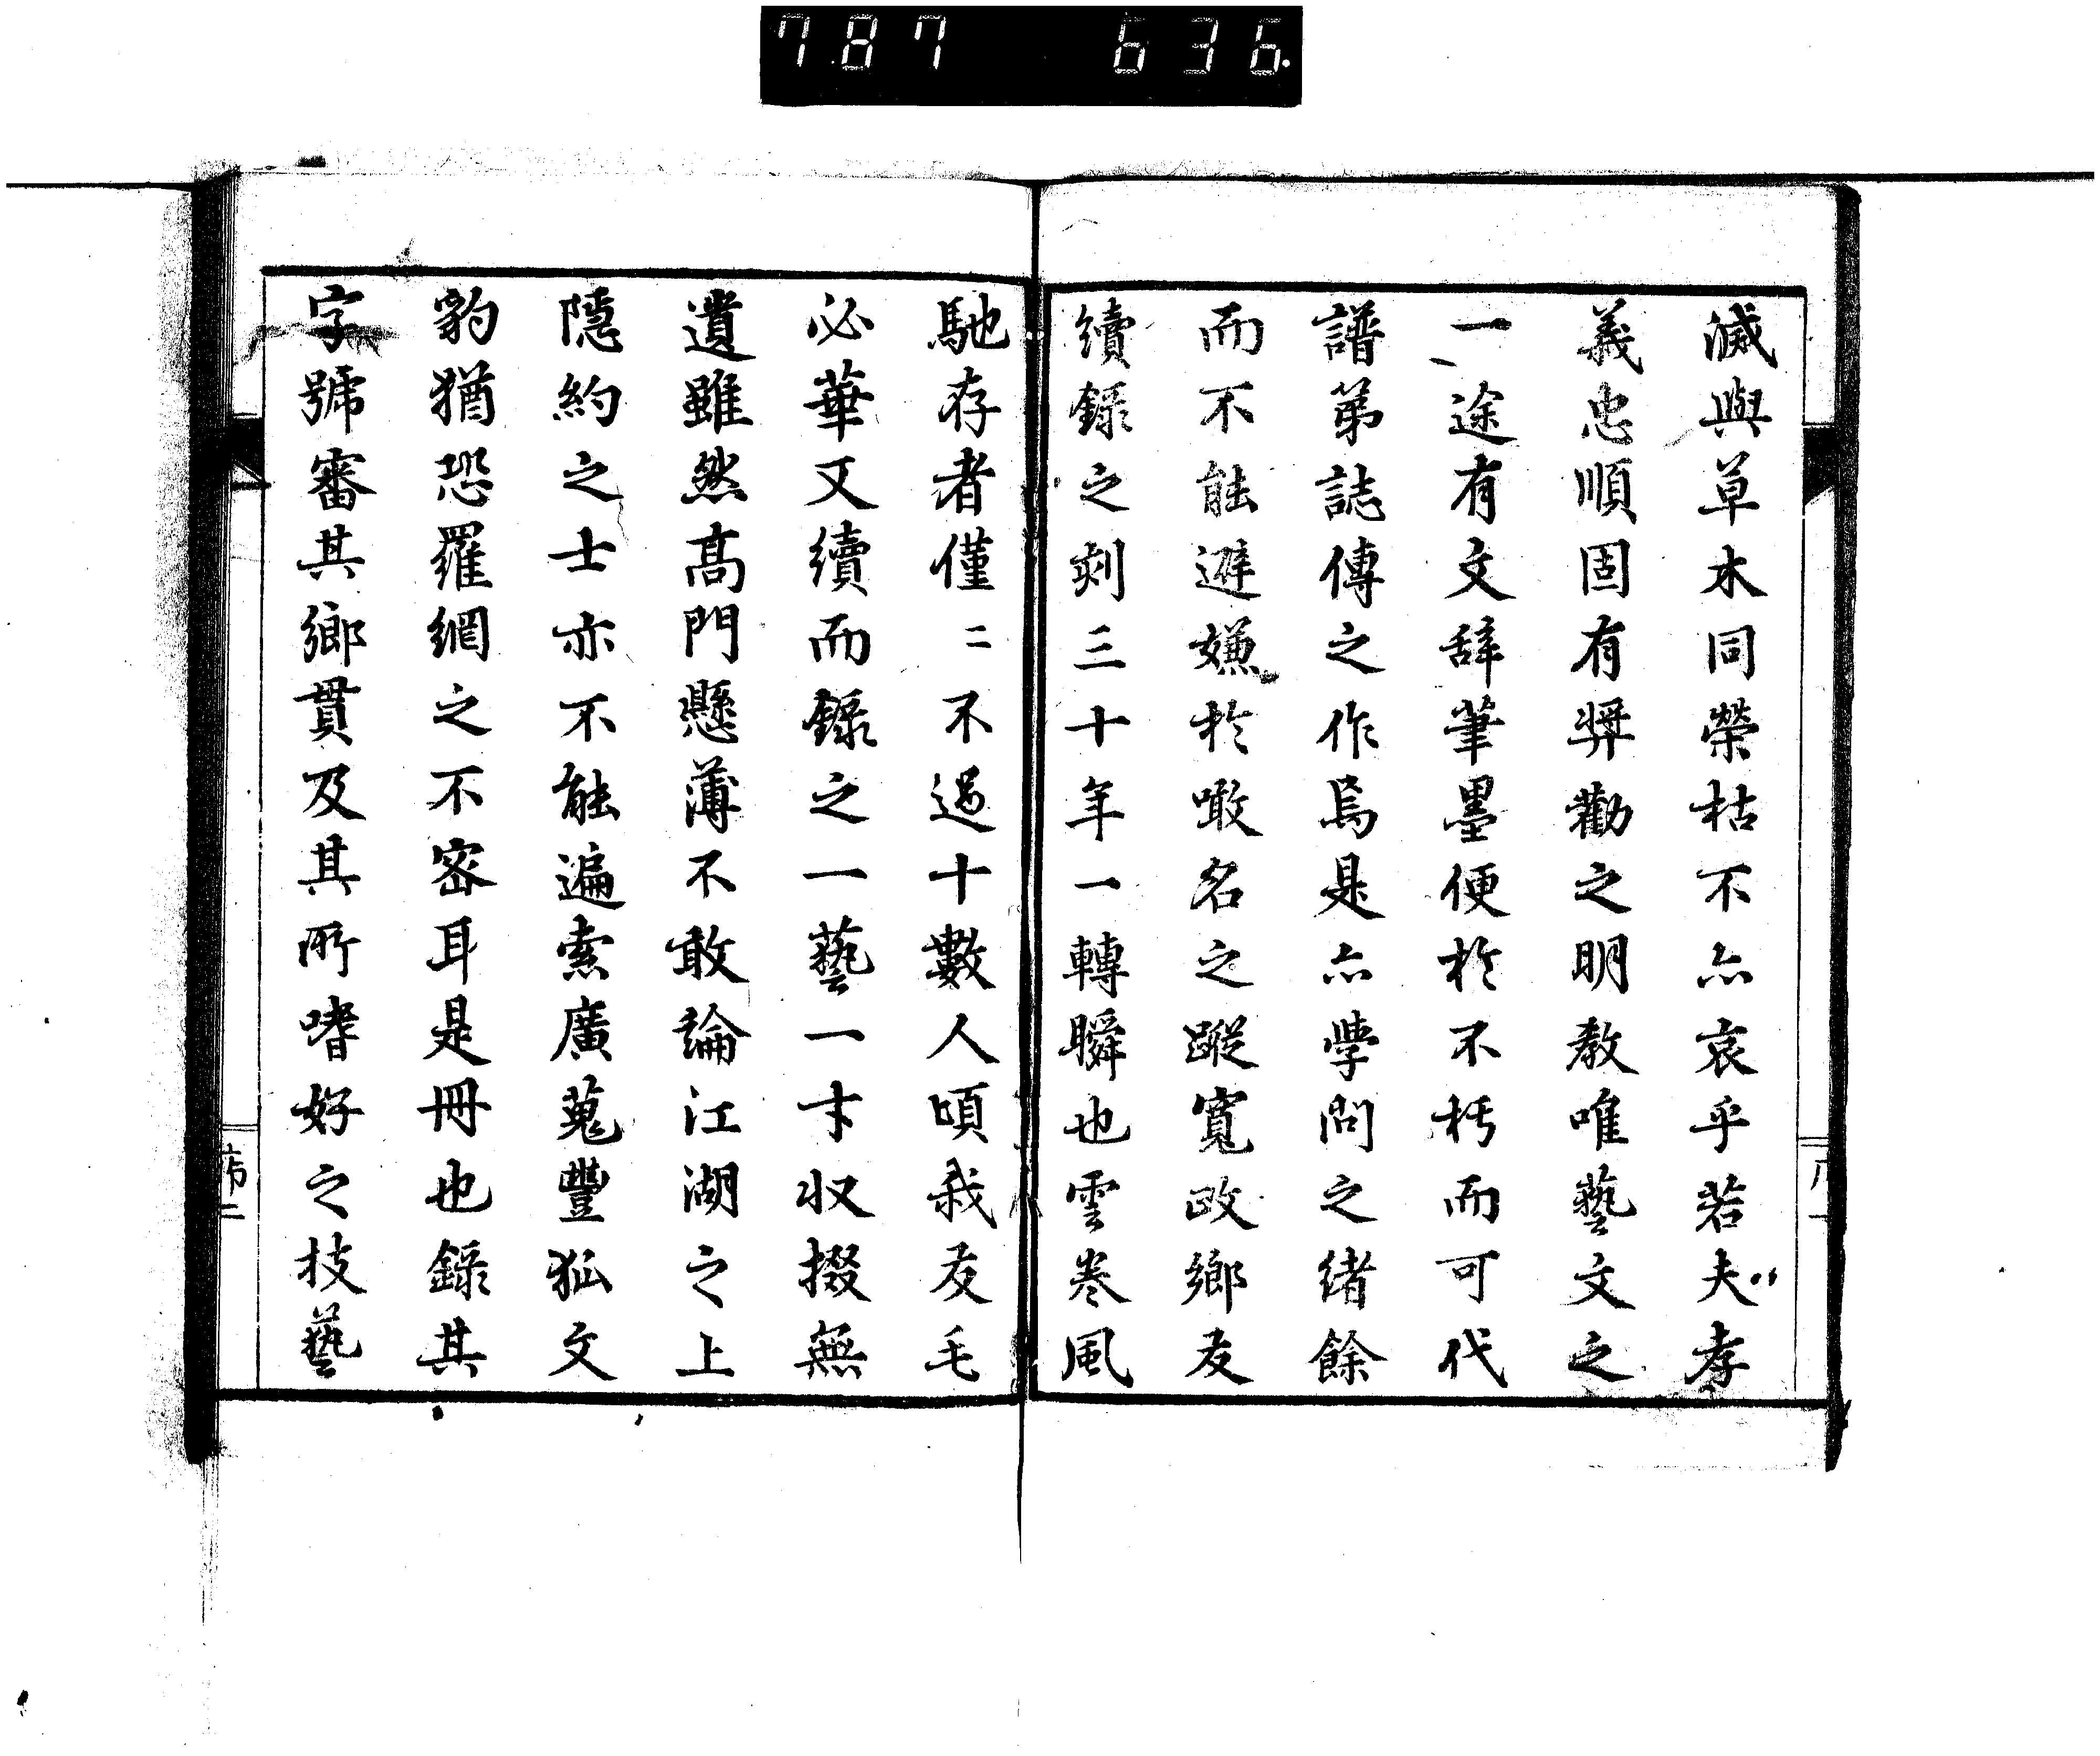 787 636.
滅與草木同榮枯不亦哀乎若夫孝
義忠順固有獎勸之明教唯藝文之
一途有文辞筆墨便於不朽而可代
譜第誌傳之作焉是亦學問之緒餘
而不能避嫌於噉名之蹤寬政鄉友
續録之刻三十年一轉瞬也雲卷風
馳存者僅二不過十數人頃我友毛
必華又續而録之一藝一才収掇無
遺雖然高門懸薄不敢論江湖之上
隱約之士亦不能遍索廣蒐豐狐文
豹猶恐羅網之不密耳是冊也錄其
字號審其鄉貫及其所嗜好之技藝